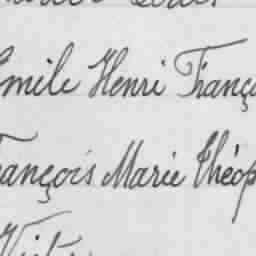 Emile Henri Franço
François Marie Théop
Victo